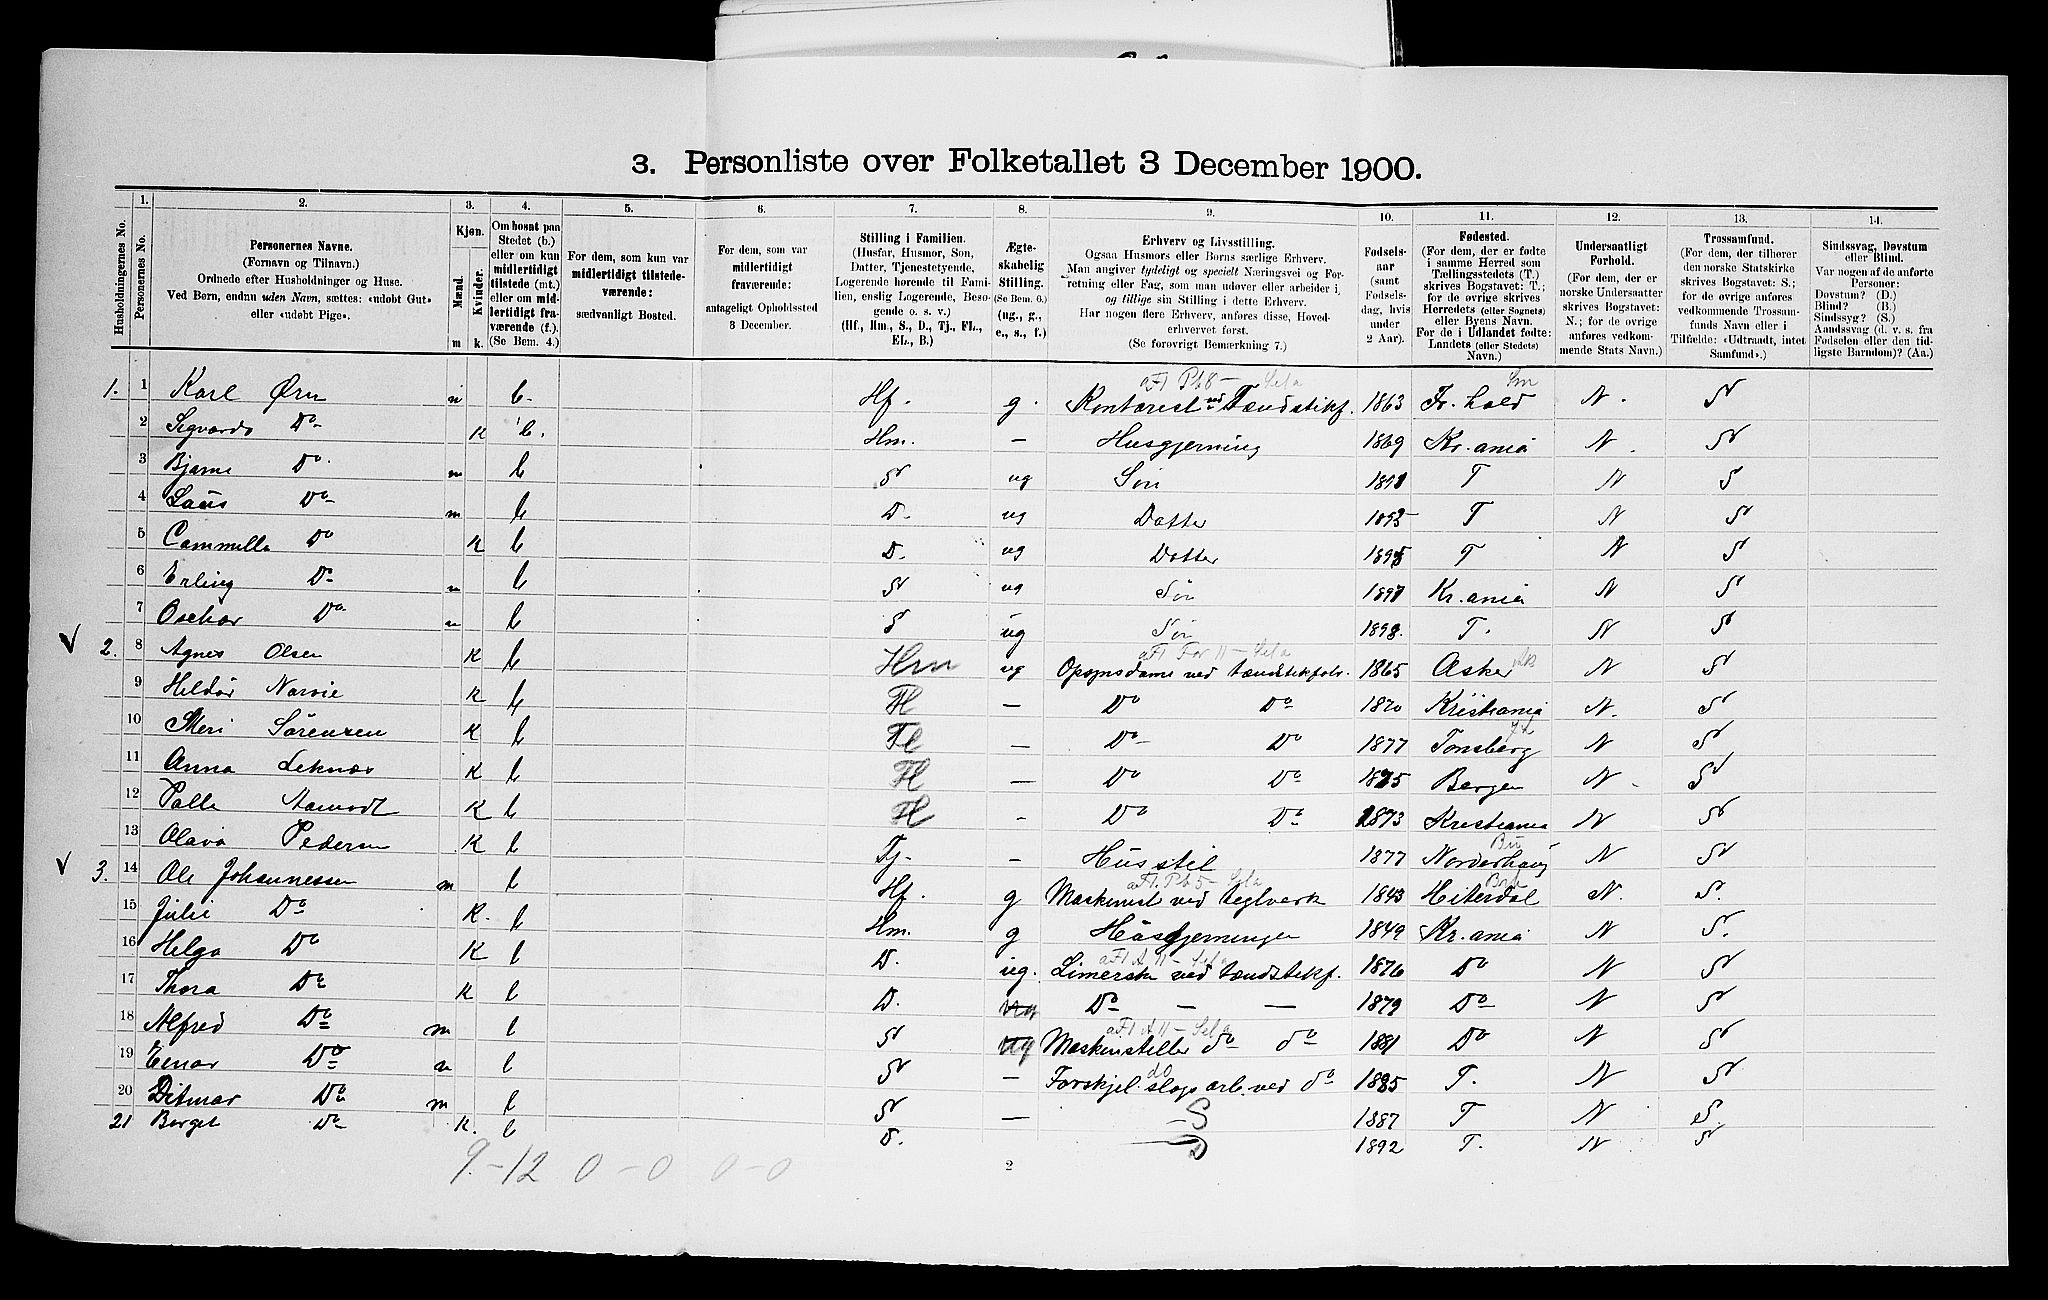 3. Personliste over Folketallet 3 December 1900.
Husholdningernes No.
1. Personernes No.
2. Personernes Navne. (Fornavn og Tilnavn.) Ordnede efter Husholdninger og Huse. Ved Børn, endnu uden Navn, sættes: «udøbt Gut» eller «udøbt Pige».
3. Kjøn. Mænd. Kvinder. m k.
4. Om bosat paa Stedet (b.) eller om kun midlertidigt tilstede (mt.) eller om midlertidigt fraværende (f.). (Se Bem. 4.)
5. For dem, som kun var midlertidigt tilstedeværende: sædvanligt Bosted.
6. For dem, som var midlertidigt fraværende: antageligt Opholdssted 3 December.
7. Stilling i Familien. (Husfar, Husmor, Søn, Datter, Tjenestetyende, Logerende hørende til Familien, enslig Logerende, Besøgende o. s. v.) (Hf., Hm., S., D., Tj., FL., EL., B.)
8. Ægteskabelig Stilling. (Se Bem. 6.) (ug., g., e., s., f.)
9. Erhverv og Livsstilling. Ogsaa Husmors eller Børns særlige Erhverv. Man angiver tydeligt og specielt Næringsvei og Forretning eller Fag, som man udøver eller arbeider i, og tillige sin Stilling i dette Erhverv. Har nogen flere Erhverv, anføres disse, Hovederhvervet først. (Se forøvrigt Bemærkning 7.)
10. Fødselsaar (samt Fødselsdag, hvis under 2 Aar).
11. Fødested. (For dem, der er fødte i samme Herred som Tællingsstedets (T.) skrives Bogstavet: T.; for de øvrige skrives Herredets (eller Sognets) eller Byens Navn. For de i Udlandet fødte: Landets (eller Stedets) Navn.)
12. Undersaatligt Forhold. (For dem, der er norske Undersaatter skrives Bogstavet: N.; for de øvrige anføres vedkommende Stats Navn.)
13. Trossamfund. (For dem, der tilhører den norske Statskirke skrives Bogstavet: S.; for de øvrige anføres vedkommende Trossamfunds Navn eller i Tilfælde: «Udtraadt, intet Samfund».)
14. Sindssvag, Døvstum eller Blind. Var nogen af de anførte Personer: Døvstum? (D.) Blind? (B.) Sindssyg? (S.) Aandssvag (d. v. s. fra Fødselen eller den tidligste Barndom)? (Aa.)
1. 1 Karl Ørn m b. Hf. g. Kontorist ved Tændstikf. 1863 Fr.hald N. S
2 Do K b. Hm. — Husgjerning 1869 Kr.ania N. S
3 Bjarne Do m b S ug Søn 1891 T N S
4 Do m b D. ug Datter T N S
5 Cammilla Do K b D. ug Datter 1895 T N S
6 Erling Do m b S ug Søn 1897 Kr.ania N S
7 Oschar Do m b S ug Søn 1898. T. N S
2. 8 Agnes Olsen K b Hm ug Opsynsdame ved tændstikfabr. 1865 Asker N S
9 K b Fl — Do Do 1870 Kristiania N. S
10 Sørensen K b Fl — Do Do 1877 Tønsberg N S
11 Anna Leknæs K b Fl — Do Do 1875 Bergen N. S
12 Palle Aamodt K b Fl - Do Do 1873 Kristiania N S
13 Olava Pedersen K b Tj. - Husstil 1877 Norderhaug N S
3. 14 Ole Johannessen m b Hf. g Maskinist ved teglverk 1843 Hiterdal N. S.
15 Julie Do K. b Hm. g Husgjerningen 1849 Kr.ania N S.
16 Helga Do K b D. ug. ved tændstikf. 1876 Do N S
17 Thora Do K b D. ug Do — — 1879 Do N S
18 Alfred Do m b S ug Maskinstiller do do 1881 Do N S
19 Einar Do m b S — Forskjel. slags arb. ved do 1885 T. N S
20 Ditmar Do m b S — S 1887 T N S.
21 Borget Do K. b D. D 1892 T. N. S
9 - 12 0 - 0 0 - 0
2